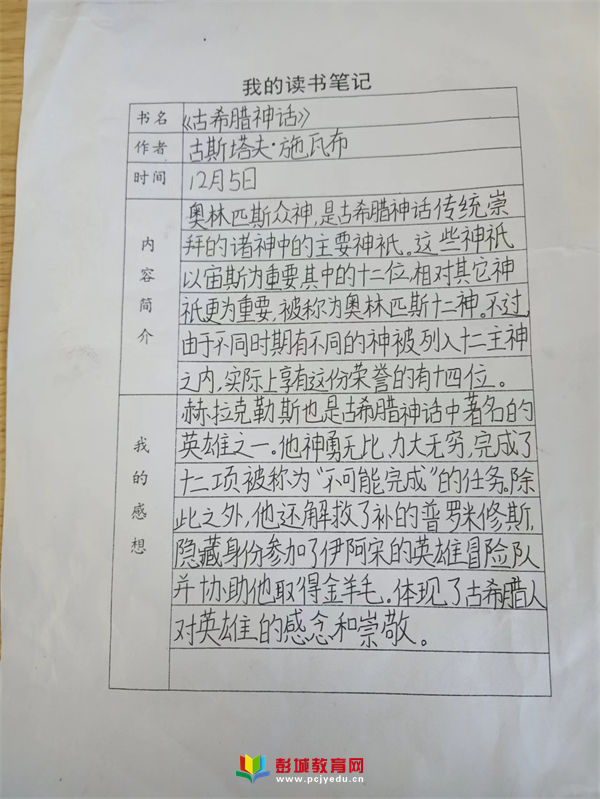 我的读书笔记
书名 《古希腊神话》
作者 古斯塔夫·施瓦布
时间 12月5日
内容简介
奥林匹斯众神,是古希腊神话传统崇
拜的诸神中的主要神祇。这些神祇
以宙斯为重要其中的十二位,相对其它神
祇更为重要,被称为奥林匹斯十二神。不过,
由于不同时期有不同的神被列入十二主神
之内,实际上享有这份荣誉的有十四位。
我的感想
赫拉克勒斯也是古希腊神话中著名的
英雄之一。他神勇无比,力大无穷,完成了
十二项被称为“不可能完成”的任务。除
此之外,他还解救了补的普罗米修斯,
隐藏身份参加了伊阿宋的英雄冒险队
并协助他取得金羊毛。体现了古希腊人
对英雄的感念和崇敬。
彭城教育网
www.pcjyedu.cn